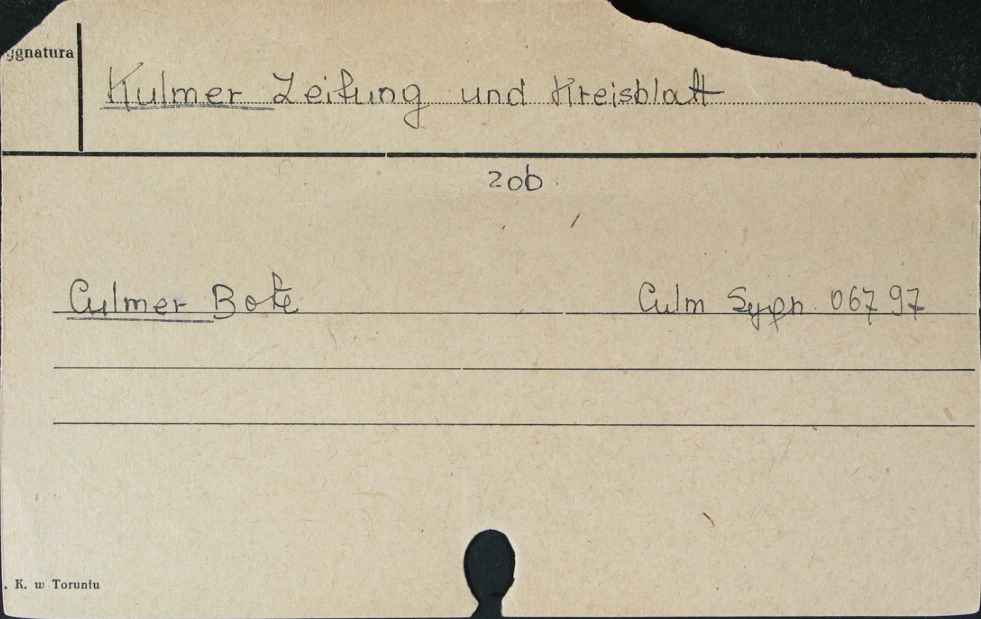 ygnatura
Kulmer Zeitung und Kreisblatt
zob
Culmer Bote Culm Sygn. 067 97
. K. w Toruniu